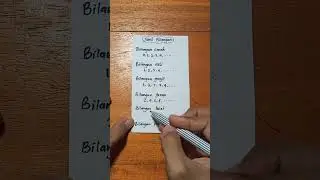 (Jenis Bilangan)
Bilangan cacah
0, 1, 2, 3, 4, ...
Bilangan asli
1, 2, 3, 4, ....
Bilangan ganjil
1, 3, 5, 7, 9, ...
Bilangan genap
2, 4, 6, 8, ....
Bilangan bulat
Bilangan
Bil
Bila